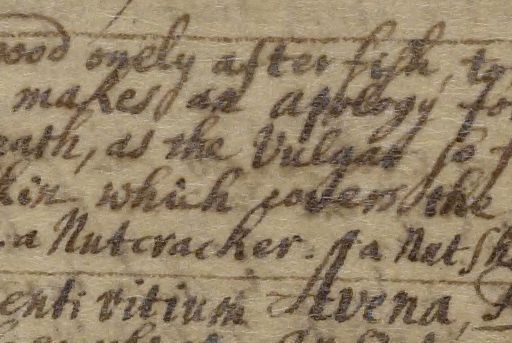 good onely after fish, to
makes an apology fo
eath, as the Vulgar so
kin which covers the
a Nutcracker. a Nut Sh
enti vitium Avena,